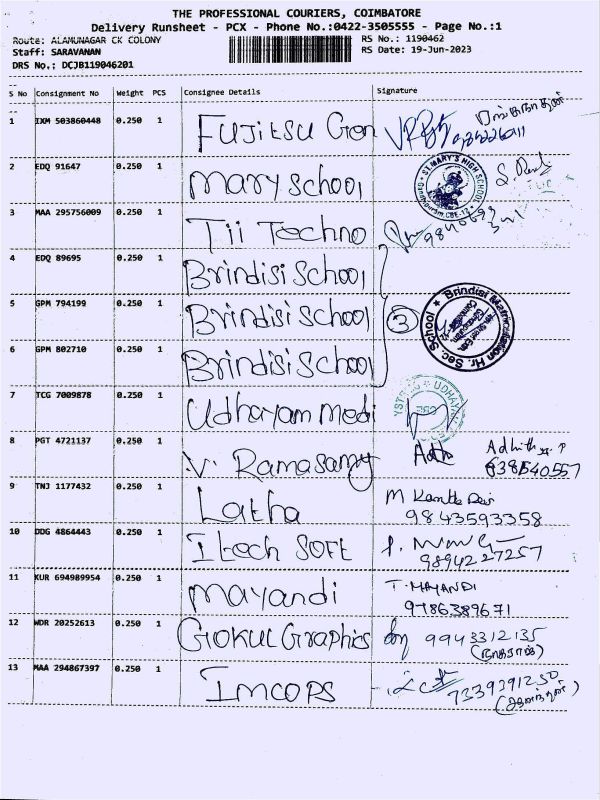 THE PROFESSIONAL COURIERS, COIMBATORE
Delivery Runsheet - PCX - Phone No.:0422-3505555 - Page No.:1
Route: ALAMUNAGAR CK COLONY RS No.: 1190462
Staff: SARAVANAN RS Date: 19-Jun-2023
DRS No.: DCJB119046201
S No Consignment No Weight PCS Consignee Details Signature
1 IXM 503860448 0.250 1 Fujitsu Gen
2 EDQ 91647 0.250 1 Mary School ST.MARY'S HIGH SCHOOL
3 MAA 295756009 0.250 1 Tii Techno
4 EDQ 89695 0.250 1 Brindisi School
5 GPM 794199 0.250 1 Brindisi School 3 Brindisi Matriculation Hr. Sec. School
6 GPM 802710 0.250 1 Brindisi School
7 TCG 7009878 0.250 1 Udhayam Medi
8 PGT 4721137 0.250 1 V. Ramasamy
9 TNJ 1177432 0.250 1 Latha M
9843593358
10 DDG 4864443 0.250 1 Itech Soft
9894227257
11 KUR 694989954 0.250 1 Mayandi T. MAYANDI
9786389671
12 WDR 20252613 0.250 1 Gokul Graphics 9943312135
13 MAA 294867397 0.250 1 Imcops
7339391250